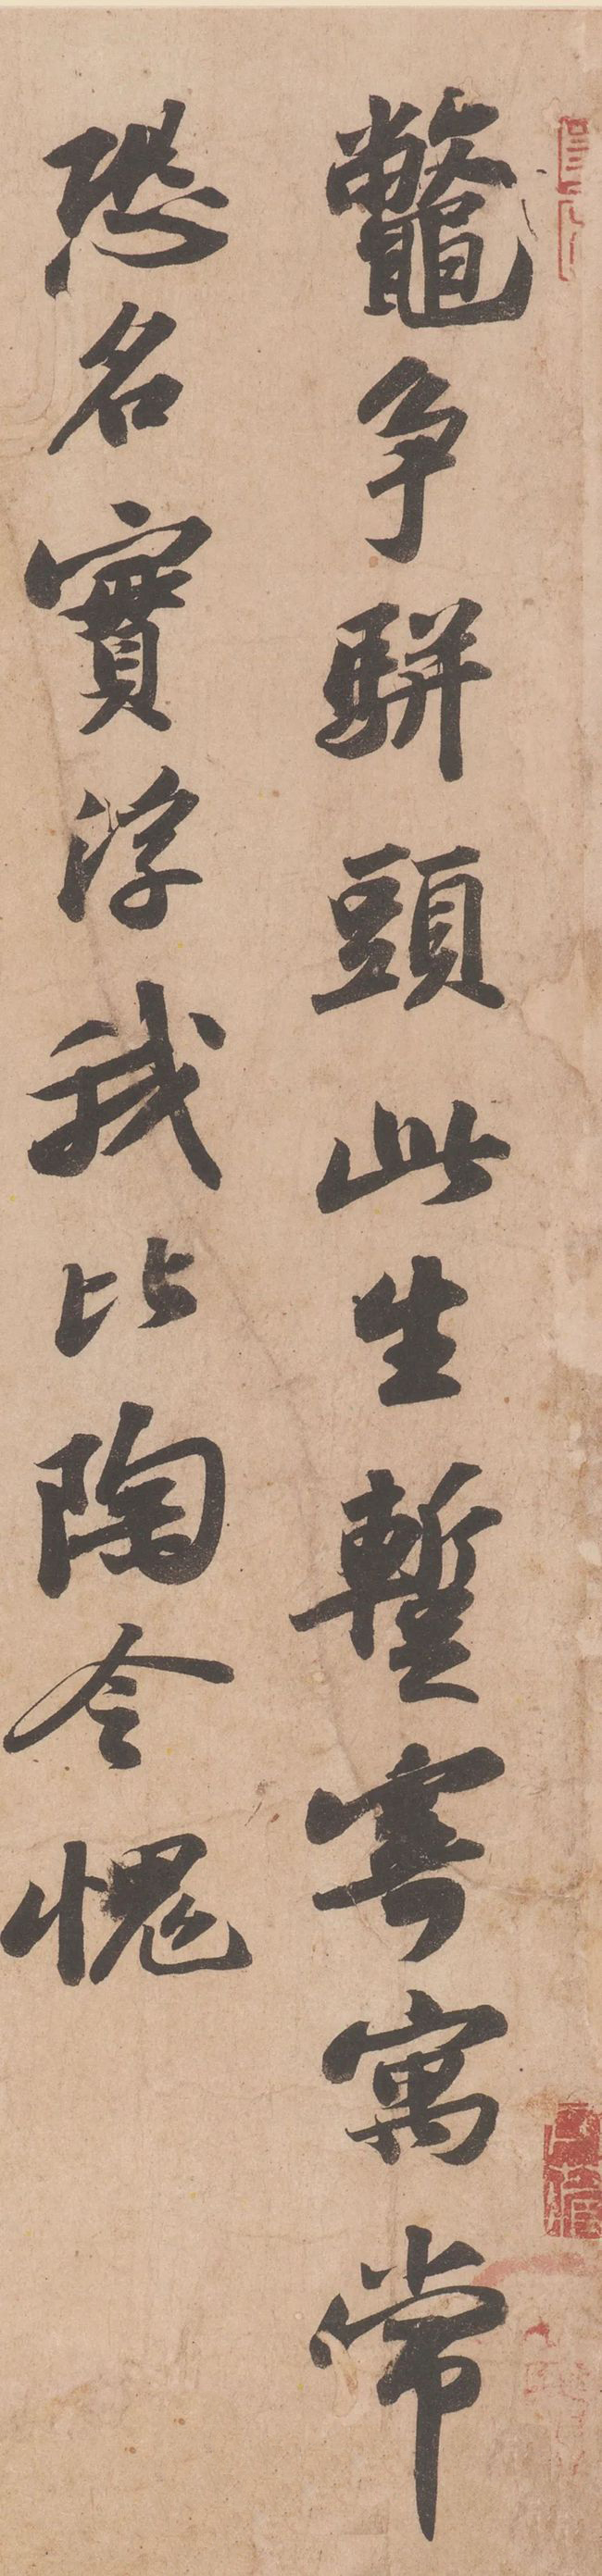 鼈争駢頭此生暫寄寓常
恐名實浮我比陶令愧